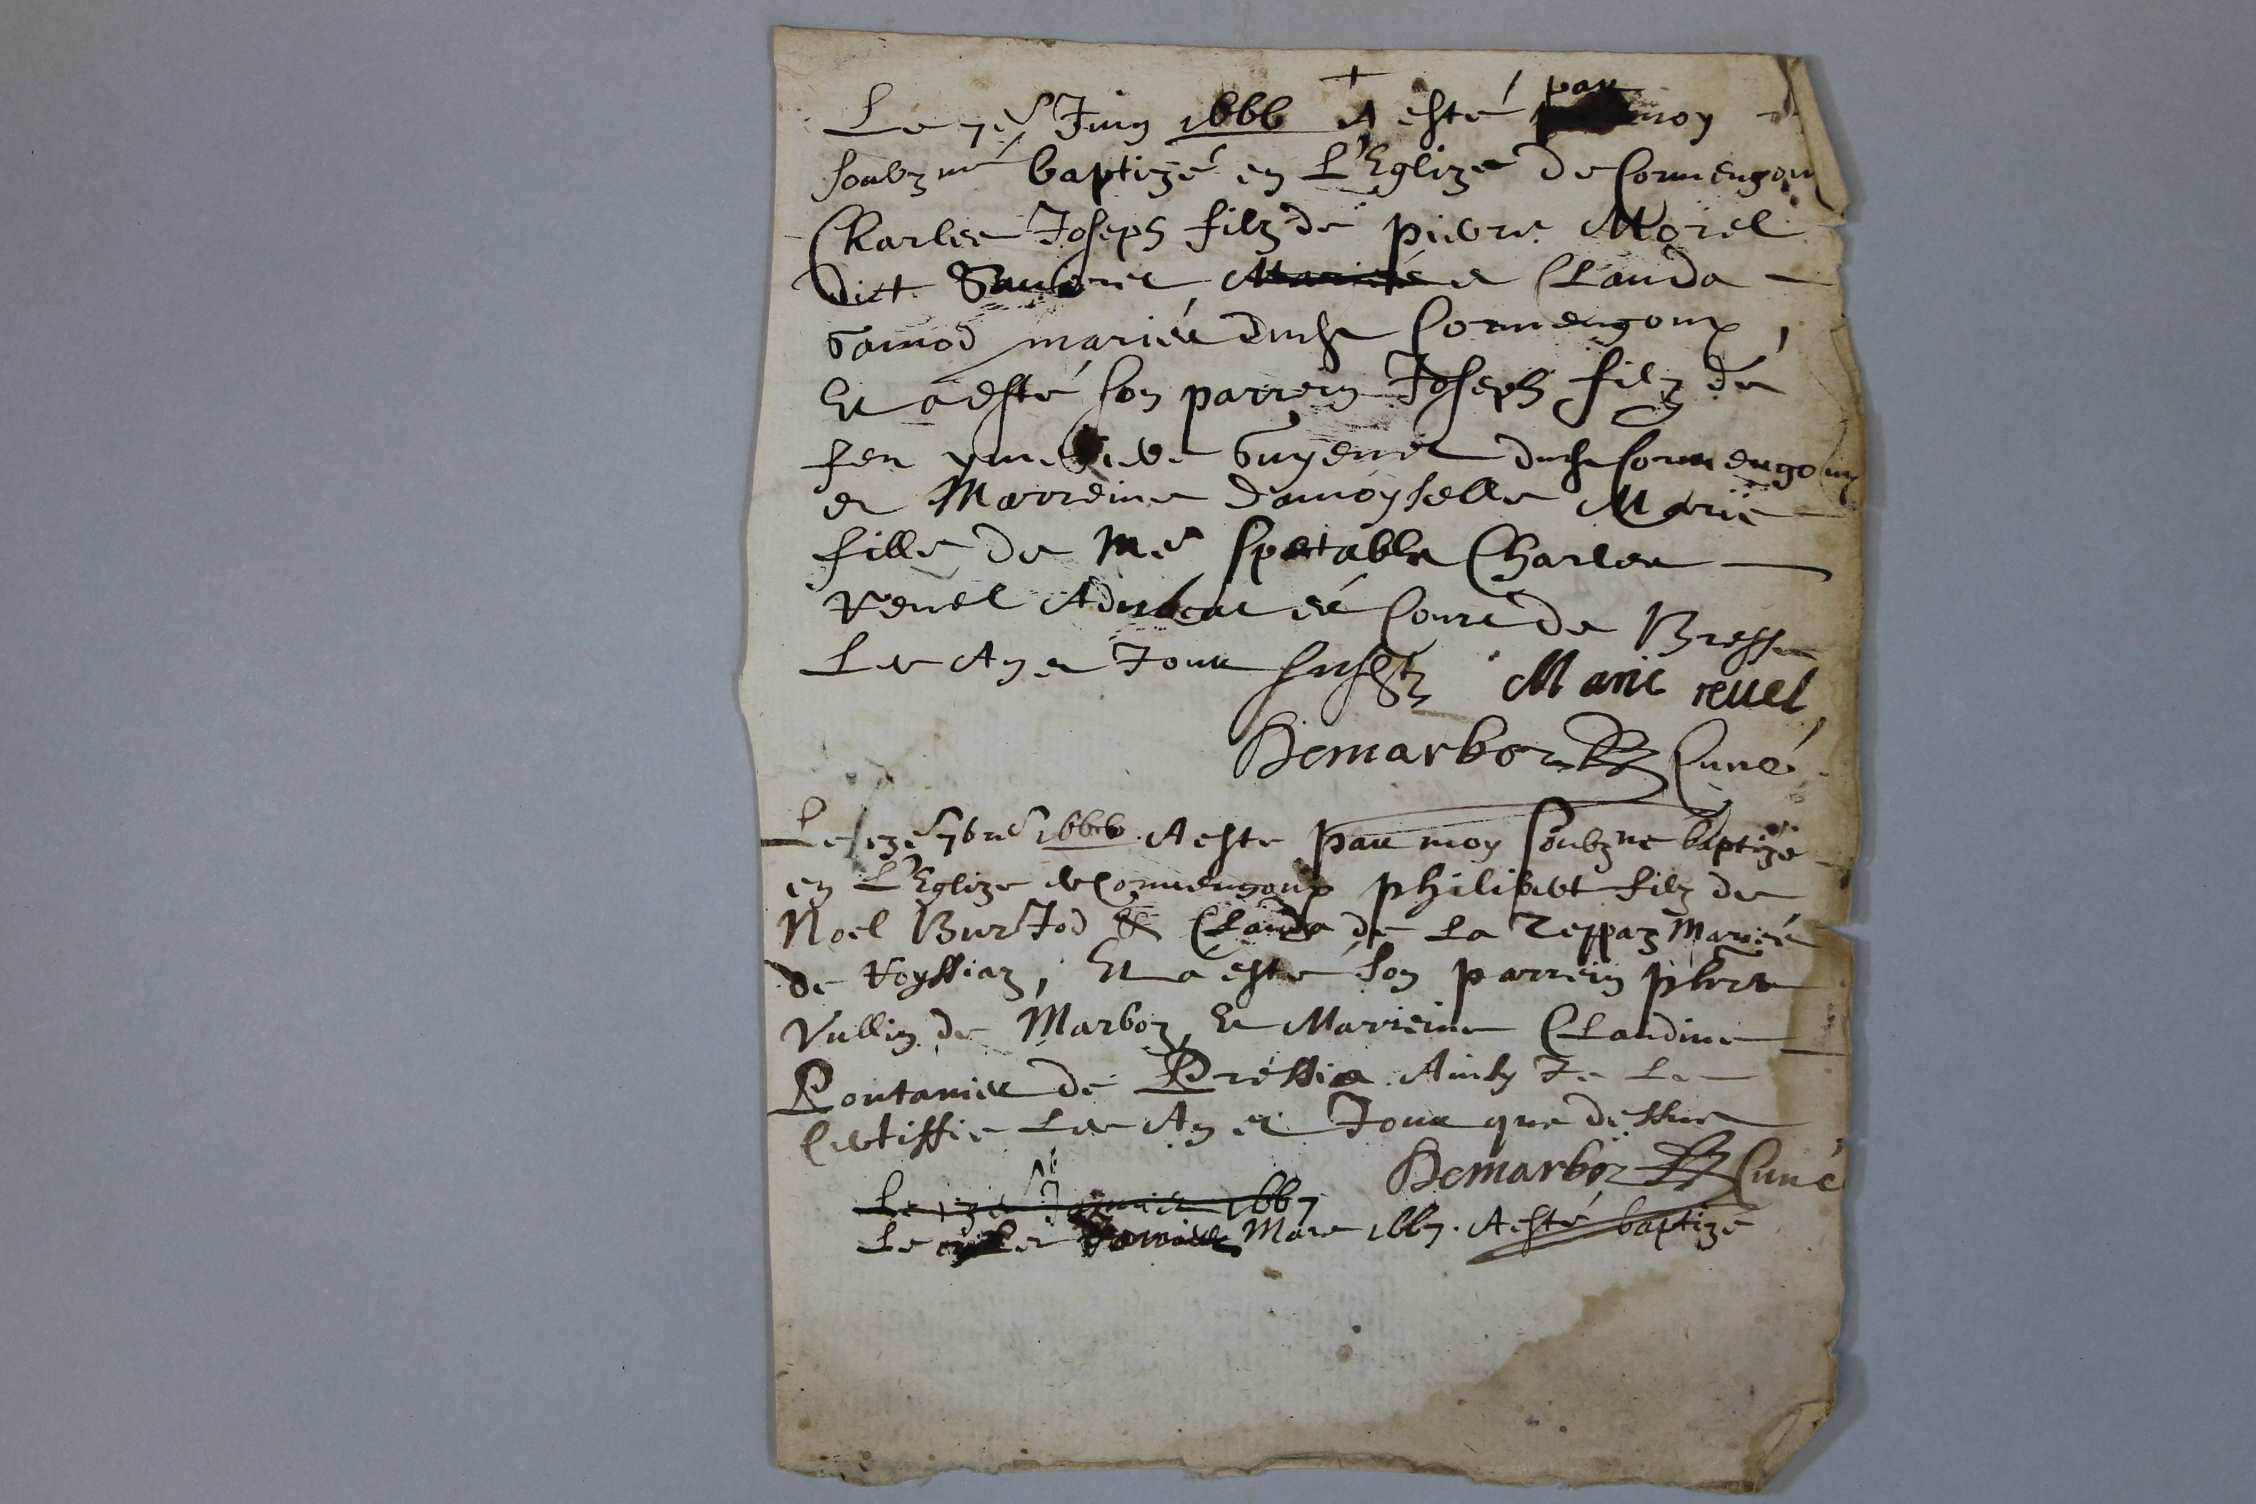 Le 7e Juin 1666 A esté par moy
soubzné baptizé en L'Eglize de Cormengou
Charles Joseph filz de pierre Morel
dict et Clauda
Gamod mariés dudt Cormengoux,
Et a esté son parrein Joseph filz de
feu Guyenet dudt Cormengoux
et Marreine damoyselle Marie
fille de Me Spectable Charles
Revel Advocat és Cours de Bresse
Les An et Jour susdtz Marie revel
Demarboz Curé
Le 7bre 1666 A esté par moy soubzne baptizé
en L'Eglize de Cormengoux philibert filz de
Noel Burtod & Clauda de La Teppaz Mariés
de Royssiaz, Et a esté son parrein pierre
Vullin de Marboz, Et Marreine Claudine
Pontanier de Préssia Ainsy Je Le
Certiffie Les An et Jour que dessus
Demarboz Curé
Le Janvier 1667
Le Mars 1667. A esté baptizé